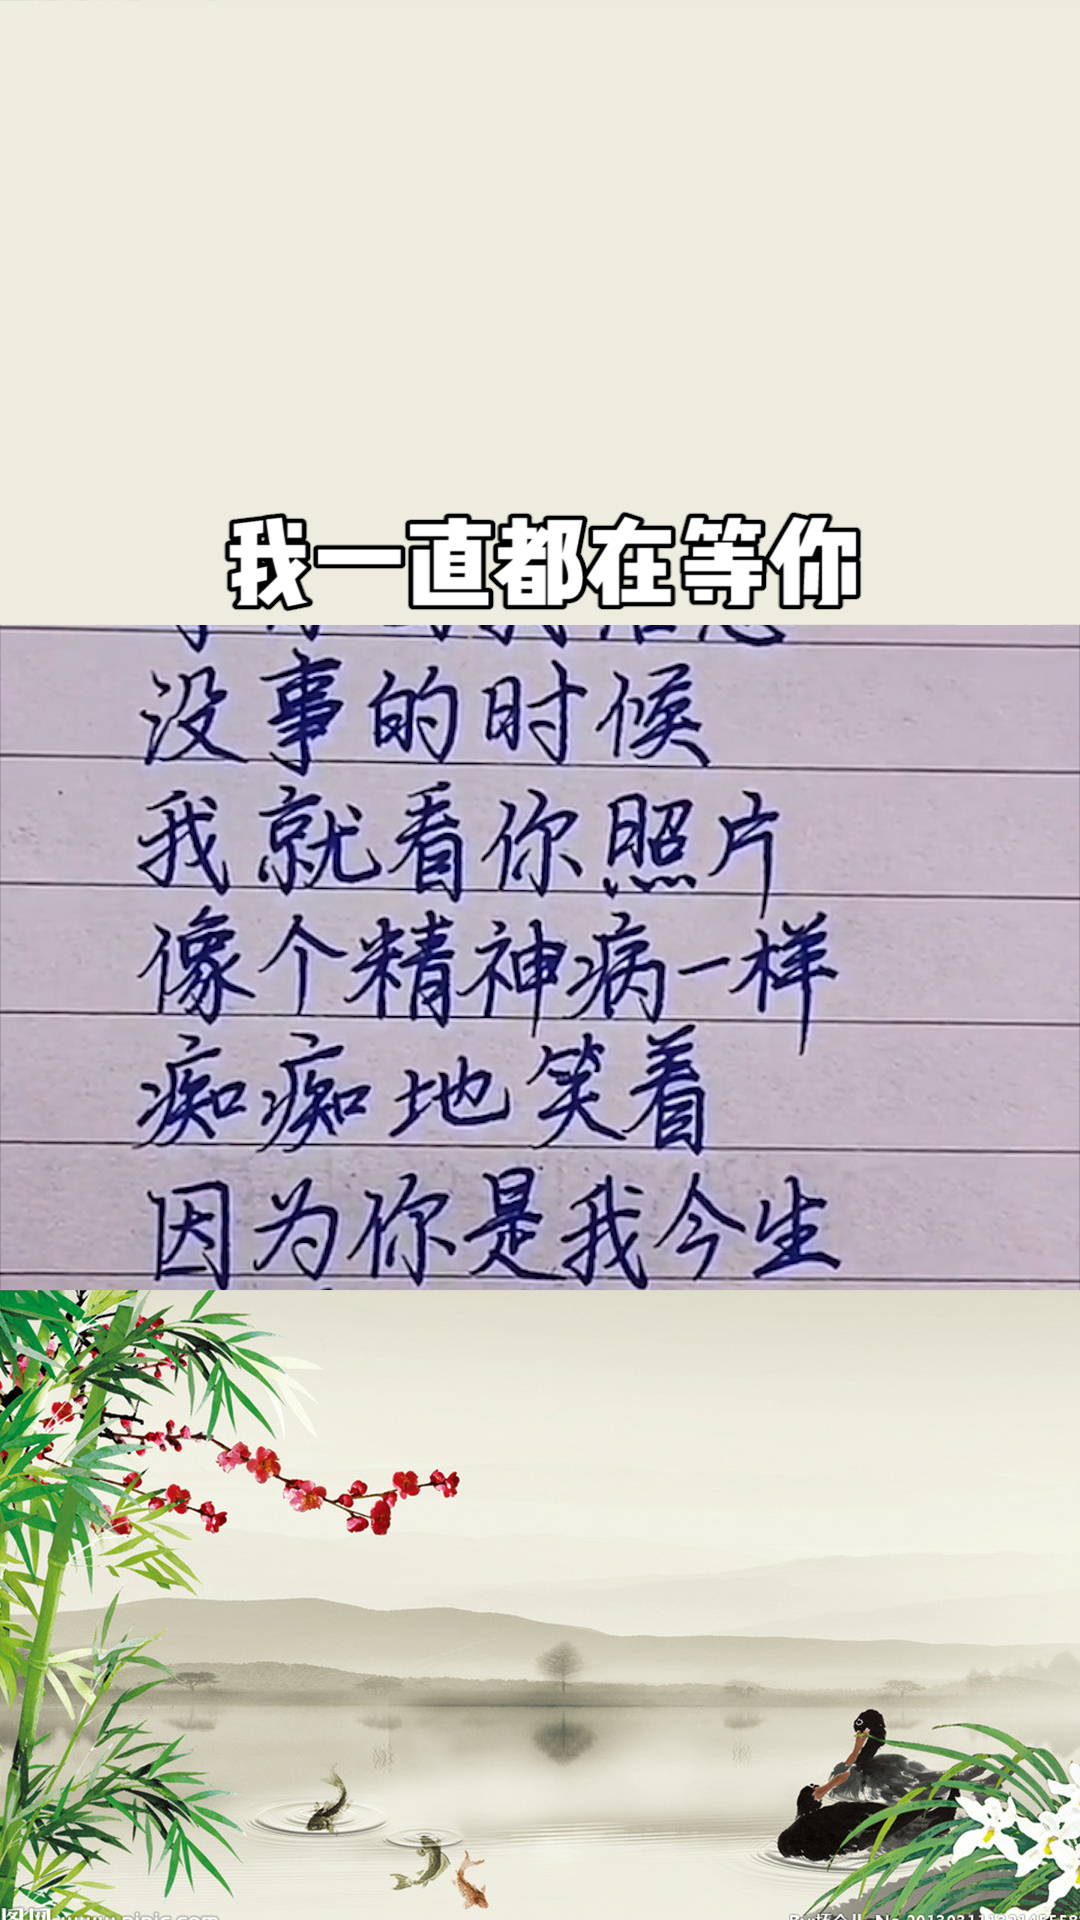 我一直都在等你
没事的时候
我就看你照片
像个精神病一样
痴痴地笑着
因为你是我今生